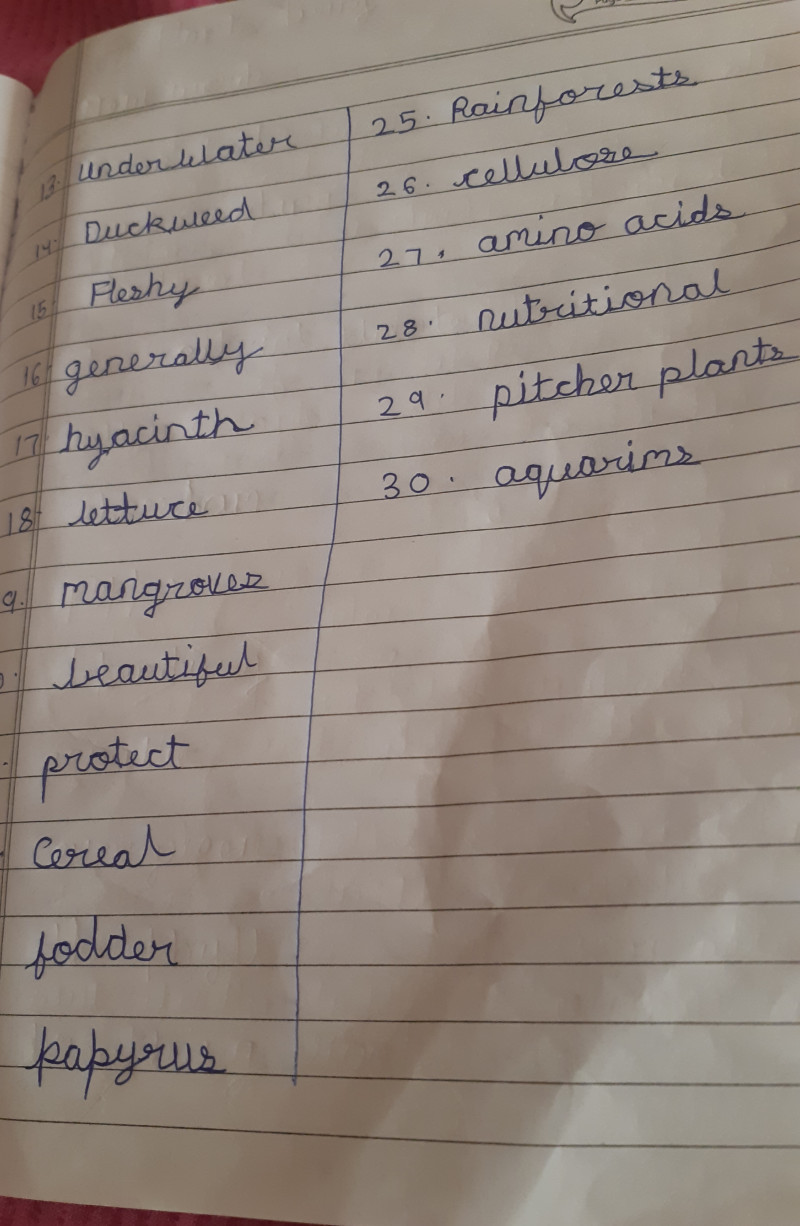 13. Under Water
14. Duckweed
15. Fleshy
16. generally
17. hyacinth
18. lettuce
9. mangroves
beautiful
protect
Cereal
fodder
papyrus
25. Rainforests
26. cellulose
27. amino acids
28. nutritional
29. pitcher plants
30. aquarims